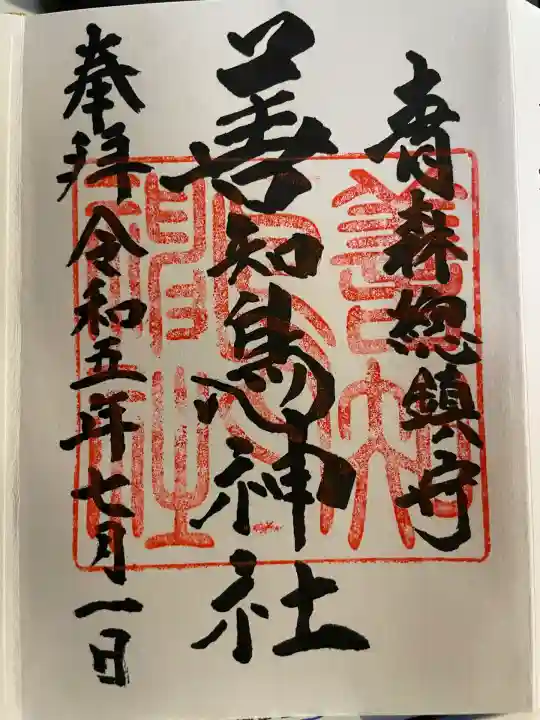 青森総鎮守
善知鳥神社
奉拝 令和五年七月一日